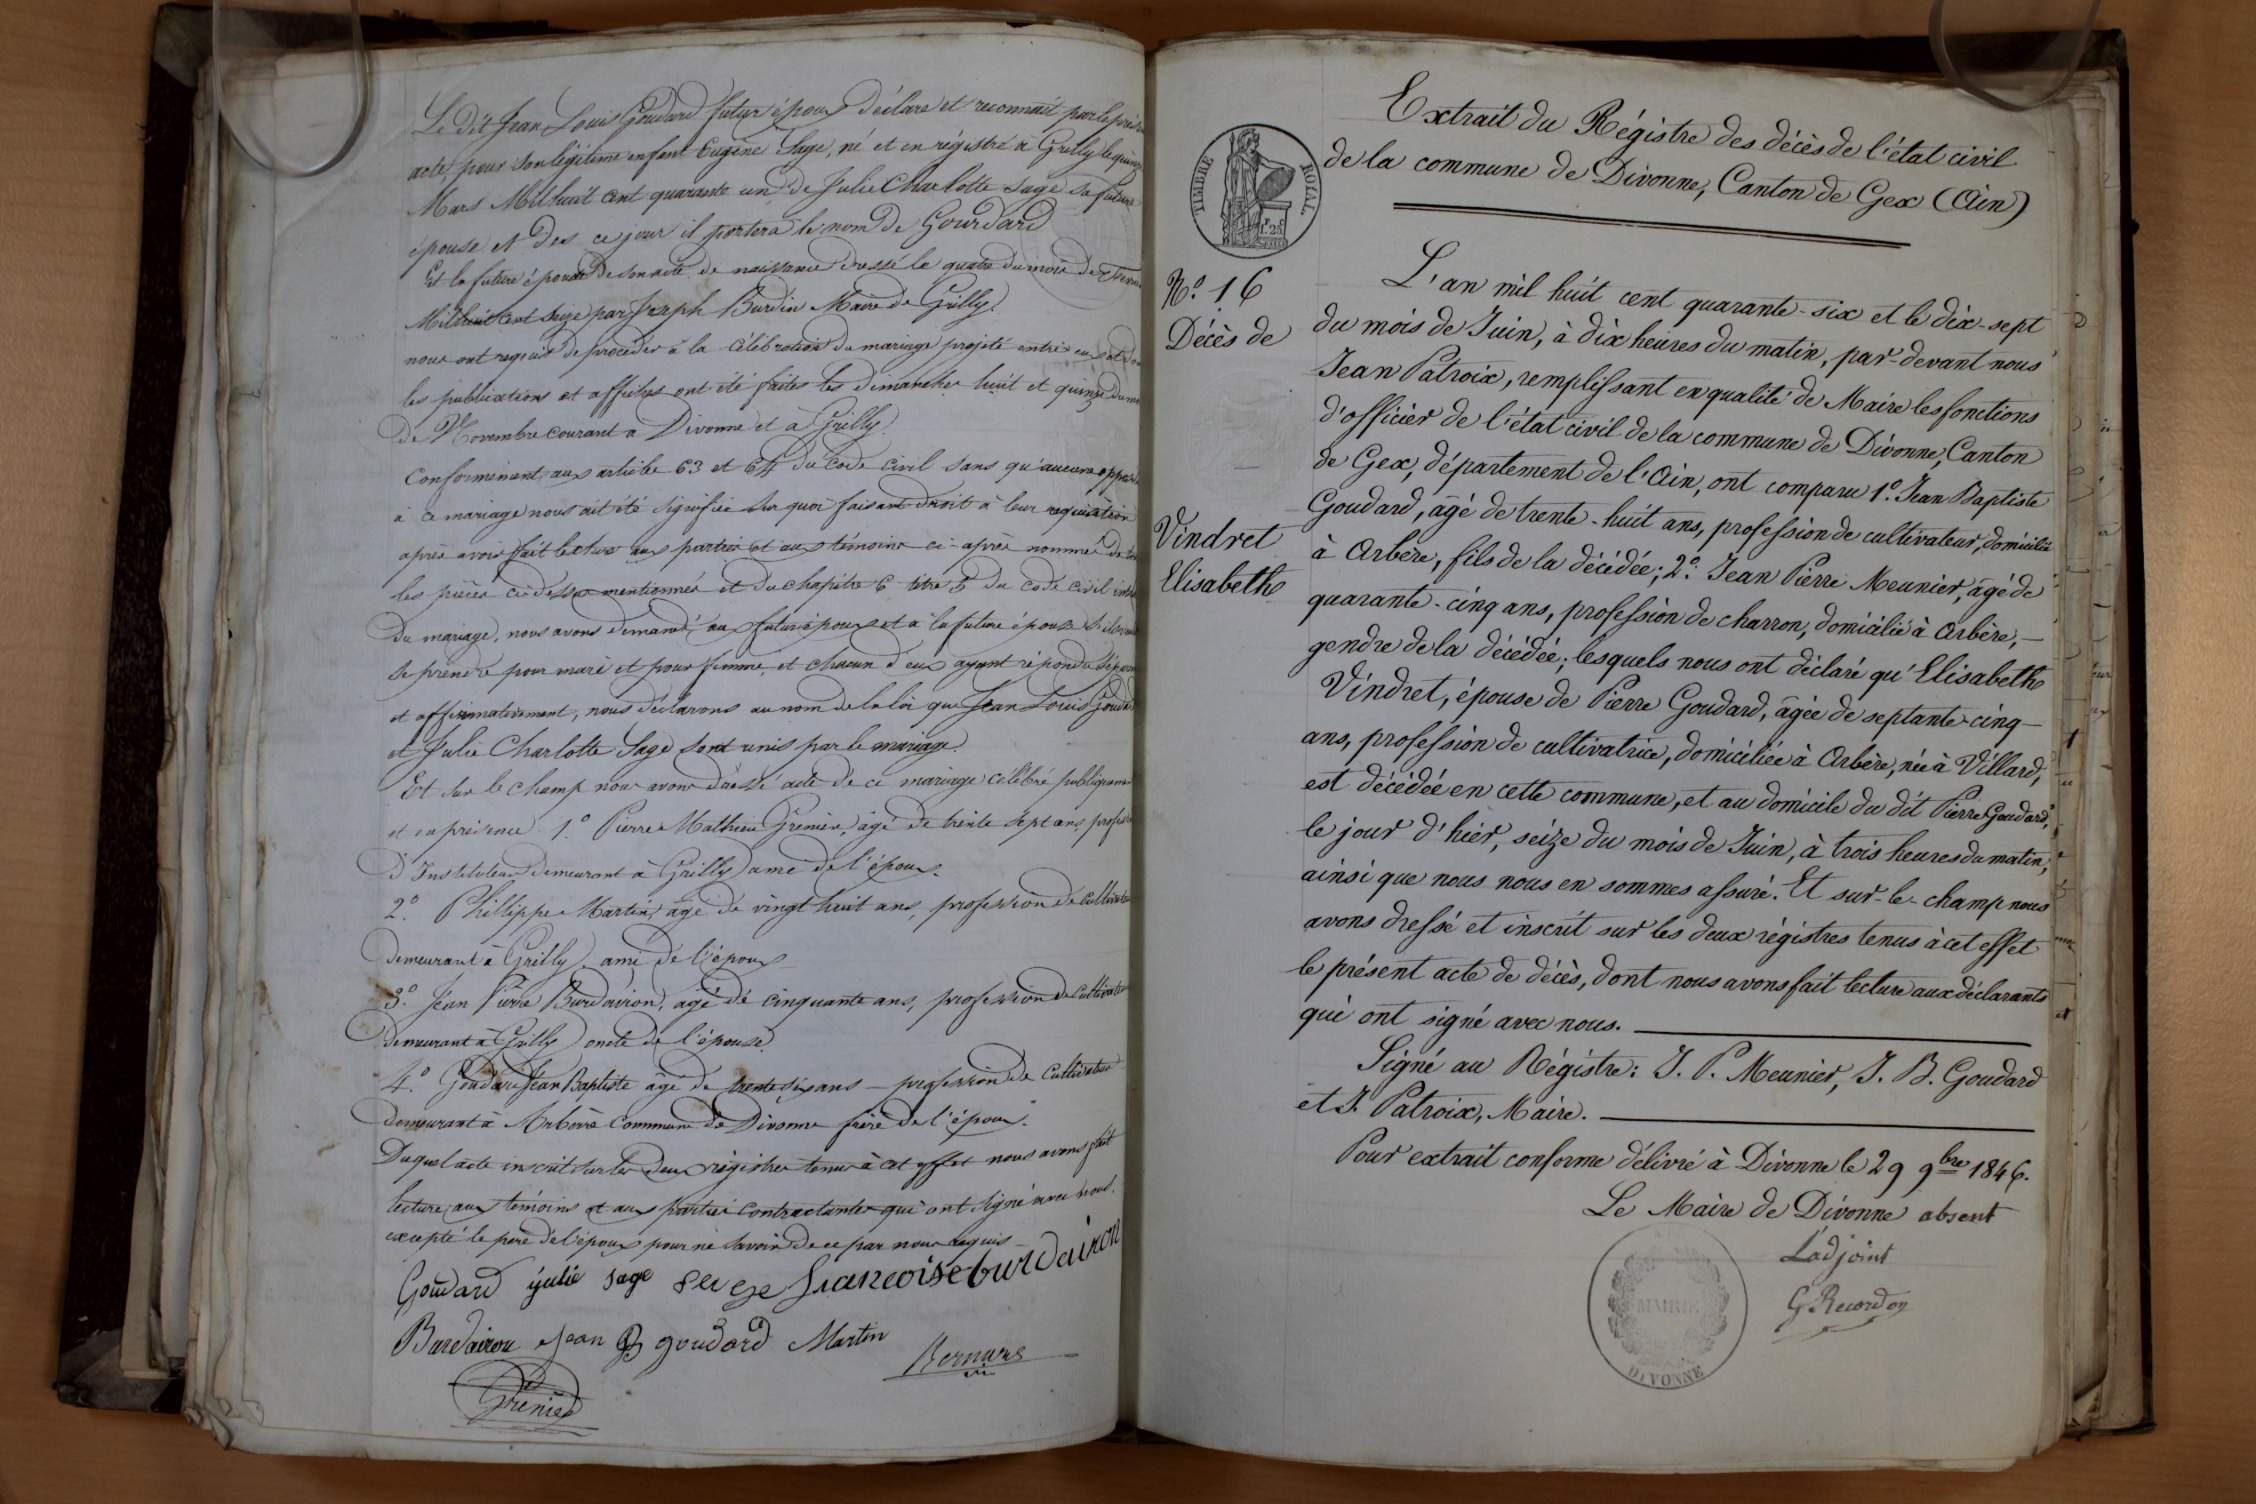 Le dit Jean Louis Goudard futur époux déclare et reconnait par le présent
acte pour son légitime enfant Eugène Sage, né et en régistré à Grilly le quinze
Mars Mil huit cent quarante un de Julie Charlotte Sage sa future
épouse et Des ce jour il portera le nom de Gourdard
Et la future épouse De son acte de naissance dressé le quatre du mois de
Mil huit cent seize par Joseph Burdin Maire de Grilly.
nous ont requis de procéder à la célébration du mariage projeté entre eux et dont
les publications et affiches ont été faites les dimanches huit et quinze du mois
de Novembre courant à Divonne et à Grilly.
Conformement aux article 63 et 64 du Code Civil sans qu'aucune oppo
à ce mariage nous ait été signifiée sur quoi faisant droit à leur requisition
après avoir fait lecture aux parties et aux témoins ci-après nommés de
les pièces ci dessus mentionnées et du chapitre 6 titre 5 du code civil
Du mariage, nous avons demandé au futur époux et à la future épouse s'ils
se prendre pour mari et pour femme, et chacun d'eux ayant répondu sépar
et affirmativement, nous déclarons au nom de la loi que Jean Louis Goudard
et Julie Charlotte Sage sont unis par le mariage.
Et sur le champ nous avons dressé acte de ce mariage célébré publiqueme
et en présence 1.º Pierre Mathieu Grenier, âgé de trente sept ans, profess
D'Instituteur demeurant à Grilly ami de l'époux.
2.º Phillippe Martin, âgé de vingt huit ans, profession de cultivate
demeurant à Grilly ami de l'époux
3.º Jean Pierre Burdairon, âgé de cinquante ans, profession de Cultivate
demeurant à Grilly oncle de l'épouse.
4.º Goudard Jean Baptiste âgé de trente six ans – profession de Cultivateur
demeurant à Arberre Commune de Divonne frère de l'époux.
Duquel acte inscrit sur les deux régistres tenus à cet effet nous avons fait
lecture aux témoins et aux parties contractantes qui ont signé avec nous.
excepté le père de l'époux pour ne savoir de ce par nous requis
Goudard julie sage francoise burdairon
Burdairon Jean B goudard Martin
Grenier
Extrait du Régistre des décès de l'état civil
de la commune de Divonne, Canton de Gex (Ain)
TIMBRE ROYAL
Nº. 16
Décès de
Vindret
Elisabeth
L'an mil huit cent quarante-six et le dix-sept
du mois de Juin, à dix heures du matin, par-devant nous
Jean Patroix, remplissant en qualité de Maire les fonctions
d'officier de l'état civil de la commune de Divonne, Canton
de Gex, département de l'Ain, ont comparu 1.º Jean Baptiste
Goudard, âgé de trente-huit ans, profession de cultivateur, domicilié
à Arbère, fils de la décédée; 2.º Jean Pierre Meunier, âgé de
quarante-cinq ans, profession de charron, domicilié à Arbère, –
gendre de la décédée; lesquels nous ont déclaré qu'Elisabeth
Vindret, épouse de Pierre Goudard, âgée de septante-cinq –
ans, profession de cultivatrice, domiciliée à Arbère, née à Villard,
est décédée en cette commune, et au domicile du dit Pierre Goudard,
le jour d'hier, seize du mois de Juin, à trois heures du matin,
ainsi que nous nous en sommes assuré. Et sur-le-champ nous
avons dressé et inscrit sur les deux régistres tenus à cet effet
le présent acte de décès, dont nous avons fait lecture aux déclarants
qui ont signé avec nous.
Signé au Régistre: J. P. Meunier, J. B. Goudard
et J. Patroix, Maire.
Pour extrait conforme délivré à Divonne le 29 9bre 1846.
Le Maire de Divonne absent
L'adjoint
G Recordon
MAIRIE
DIVONNE